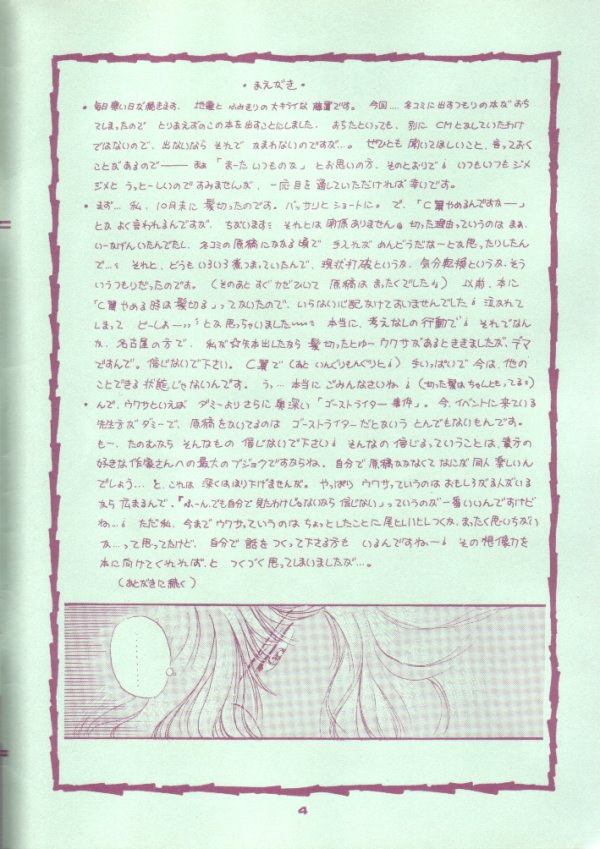 ・まえがき・
・毎日寒い日が続きます、地震と ゆみきりの大キライな 藤置です。今回…、ネコミに出すつもりの本がおち
てしまったので とりあえずのこの本を出すことにしました、おちたといっても、別に CMとかしていたわけ
ではないので、出ないなら それで かまわないのですが…。ぜひとも 聞いてほしいこと、言っておく
ことがあるので―― まぁ「まーた いつものな」とお思いの方、そのとおりで いつもいつもジメ
ジメと うっとーしいのですみませんが、一応目を通していただければ幸いです。
・まず…私、10月末に 髪切ったのです。バッサリとショートに。で、「C翼やめるんですかー」
とか よく言われるんですが、ちがいます それとは関係ありません。切った理由っていうのは まぁ、
いーかげんいたんでたし、ネコミの原稿にかかる頃で 手入れが めんどうだなーとか思ったりしたん
で… それと、どうもいろいろ煮つまっていたんで、現状打破というか、気分転換というか、そう
いうつもりだったのです。(そのあと すぐ カゼひいて 原稿は まったくでした) 以前、本に
「C翼やめる時は髪切る」ってかいたので、いらない心配かけておいませんでした 泣かれて
しまって どーしよーっっ とか思っちゃいました 本当に、考えなしの行動で それでなん
か、名古屋の方で、私が☆矢本出したなら 髪切ったとゆー ウワサがあるとききましたが、デマ
ですんで。信じないで下さい。C翼で(あと いんぐりもんぐりと) 手いっぱいで 今は、他の
ことできる状態じゃないんです。うっ… 本当に ごみんなさいね (切った髪はちゃんともってる)
・んで、ウワサといえば ダミーよりさらに奥深い「ゴーストライター事件」。今、イベントに来ている
先生方がダミーで、原稿をかいてるのは ゴーストライターだという とんでもないもんです。
もー、たのむから そんなもの 信じないで下さい そんなの 信じるっていうことは、貴方の
好きな作家さんへの最大のブジョクですからね。自分で原稿かかなくて なにが同人 楽しいん
でしょう… と、これは 深くはほり下げませんが。やっぱり ウワサっていうのは おもしろがる人がいる
なら 広まるんで、『ふーん。でも自分で見たわけじゃないなら 信じない』っていうのが一番いいんですけど
ね… ただ私、今まで ウワサっていうのは ちょっとしたことに 尾ヒレハヒレつくか、まったく思いちがい
か…って思ってたけど、自分で 話をつくって下さる方も いるんですね… その想像力を
本に向けてくれれば、と つくづく思ってしまいましたが…。
(あとがきに続く)
……
4